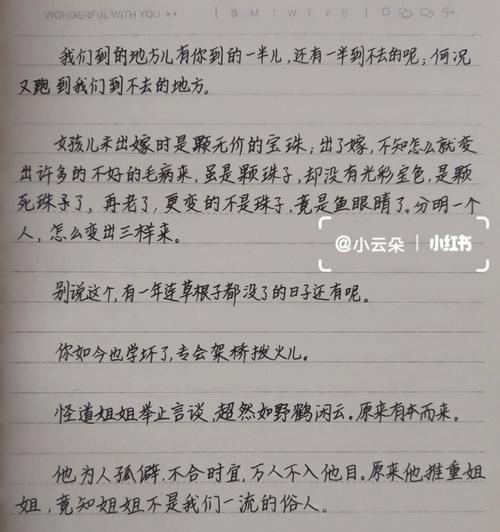 WONDERFUL WITH YOU ▸▸ | S M T W T F S |
我们到的地方儿有你到的一半儿，还有一半到不去的呢；何况
又跑到我们到不去的地方。
女孩儿未出嫁时是颗无价的宝珠；出了嫁，不知怎么就变
出许多的不好的毛病来，虽是颗珠子，却没有光彩宝色，是颗
死珠子了，再老了，更变的不是珠子，竟是鱼眼睛了。分明一个
人，怎么变出三样来。
@小云朵 小红书
别说这个，有一年连草根子都没了的日子还有呢。
你如今也学坏了，专会架桥拨火儿。
怪道姐姐举止言谈，超然如野鹤闲云。原来有本而来。
他为人孤僻，不合时宜，万人不入他目。原来他推重姐
姐，竟知姐姐不是我们一流的俗人。